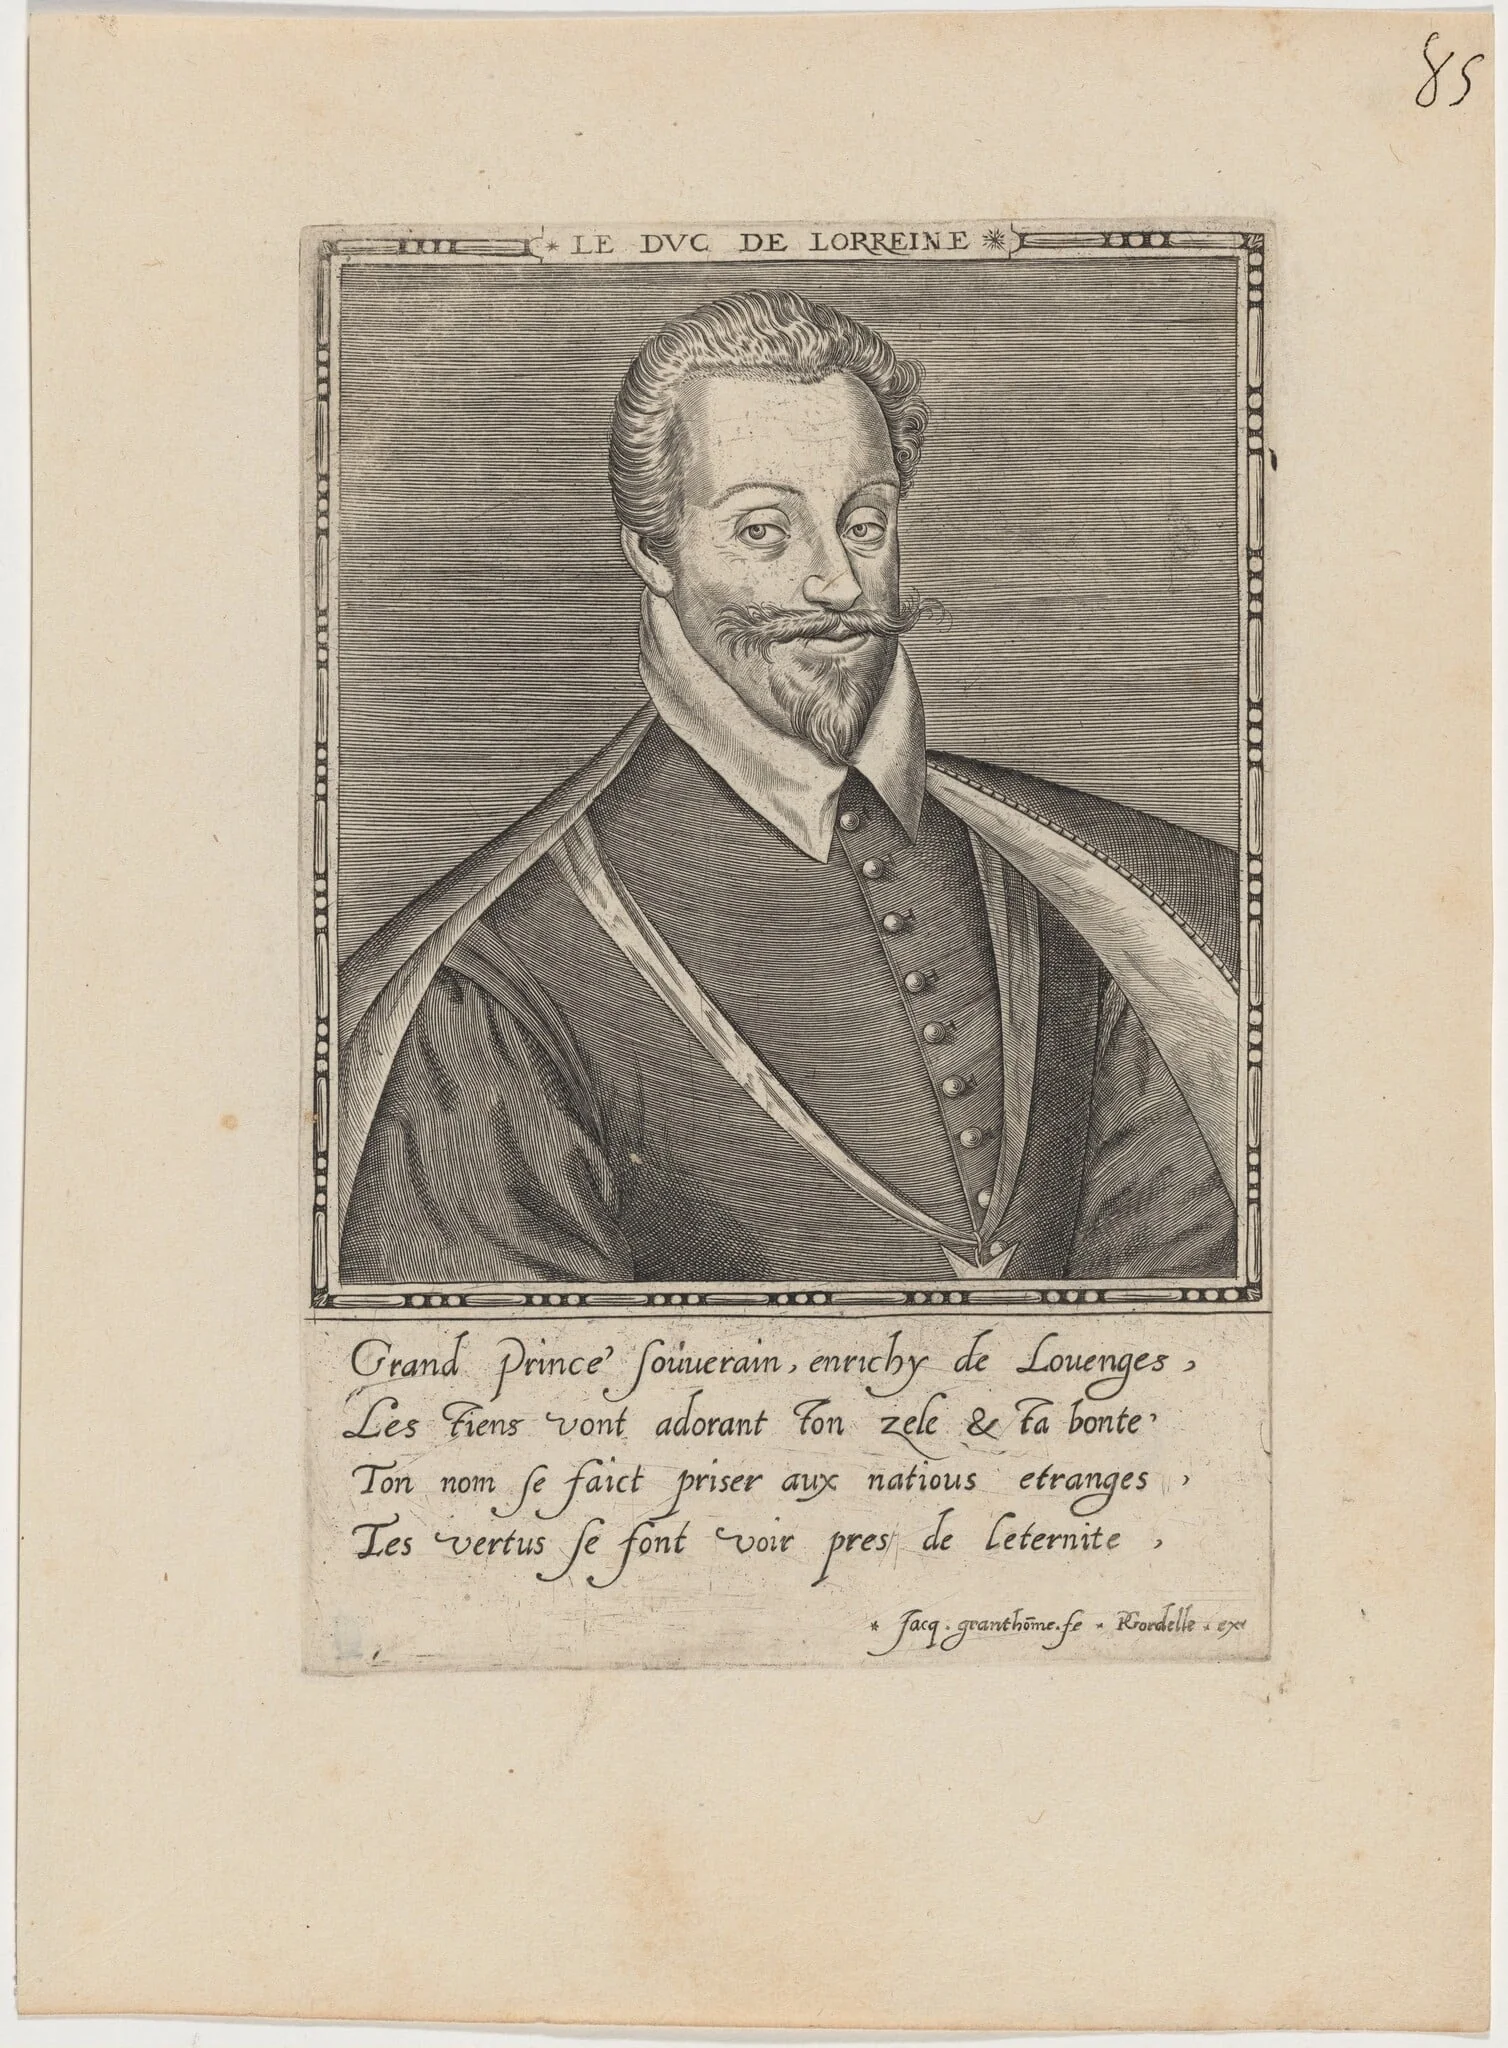 85
* LE DVC DE LORREINE *
Grand Prince souuerain, enrichy de Louenges,
Les Tiens vont adorant Ton zele & Ta bonte,
Ton nom se faict priser aux natious etranges,
Tes vertus se font voir pres de leternite,
* Jacq. granthōme. fe * PGordelle. ex